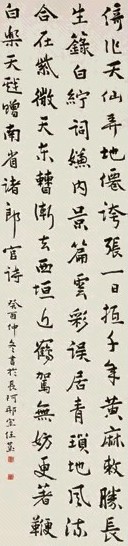 倚作天仙弄地僊誇張一日抵千年黃麻敕勝長
生籙白紵詞嫌內景篇雲彩誤居青瑣地風流
合在紫微天東曹漸去西垣近鶴駕無妨更著鞭
白樂天戲贈南省諸郎官詩 癸酉仲冬書於長